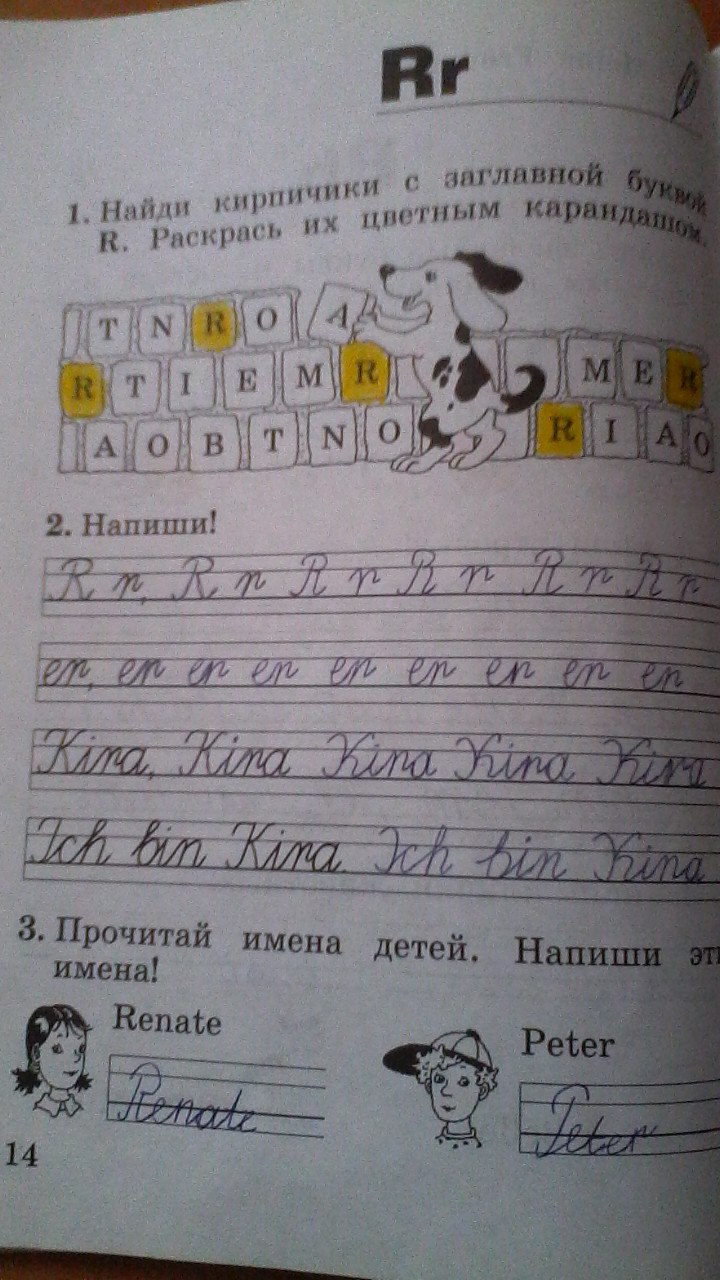 Rr
1. Найди кирпичики с заглавной буквой
R. Раскрась их цветным карандашом.
T N R O A
R T I E M R M E R
A O B T N O R I A O
2. Напиши!
R r, R r R r R r R r R r
er, er er er er er er er er
Kira, Kira Kira Kira Kira
Ich bin Kira. Ich bin Kira
3. Прочитай имена детей. Напиши эти
имена!
Renate
Peter
Renate
Peter
14